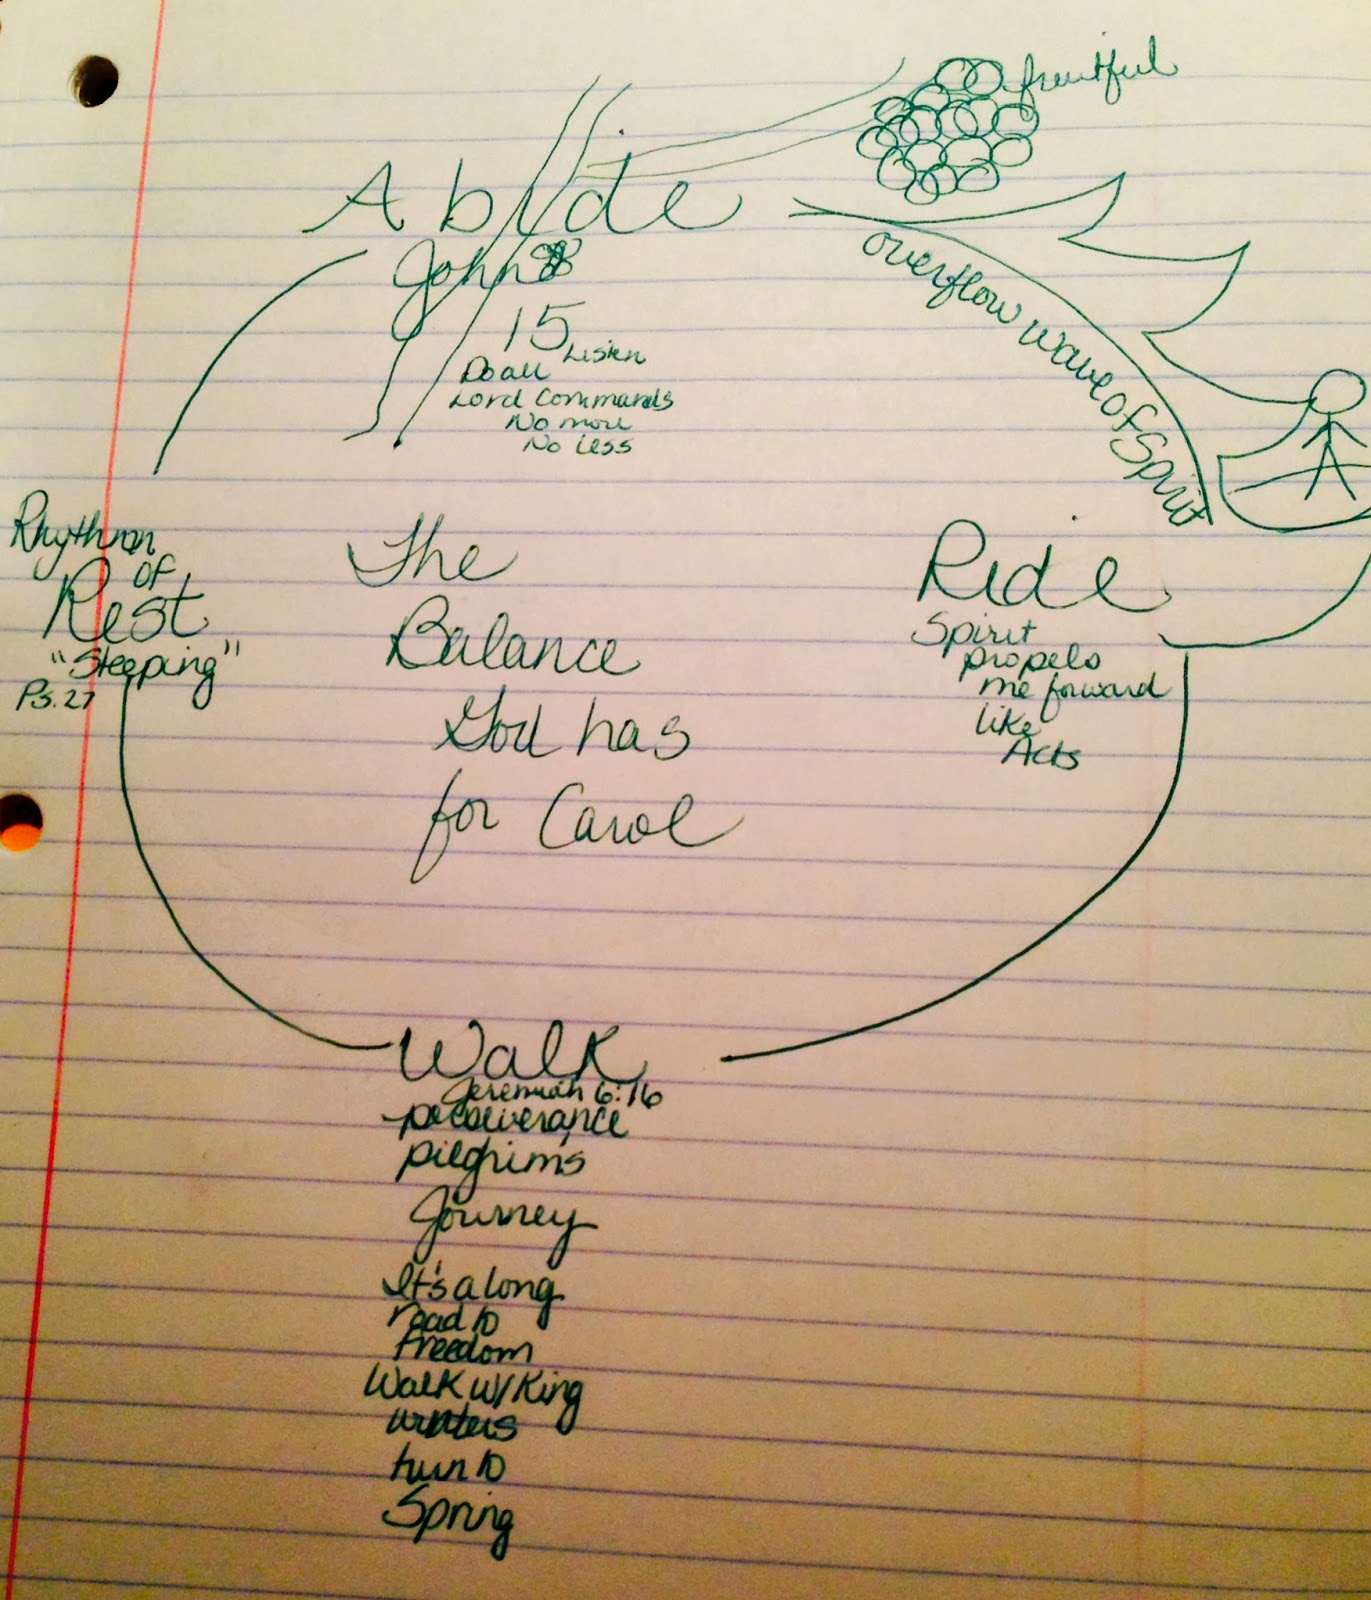 fruitful
Abide
John
15
Listen
Do all
Lord Commands
No more
No Less
overflow wave of Spirit
Rhythm
of
Rest
"Sleeping"
Ps. 27
The
Balance
God has
for Carol
Ride
Spirit
propels
me forward
like
Acts
Walk
Jeremiah 6:16
perseverance
pilgrim's
Journey
It's a long
road to
Freedom
Walk w/ King
winters
turn to
Spring